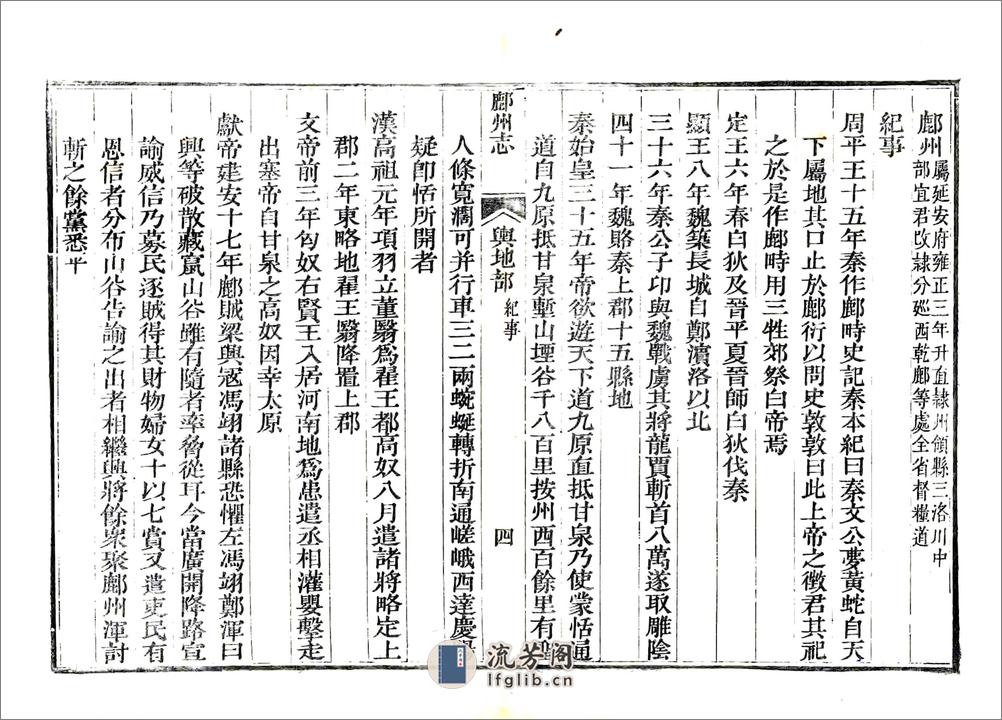 鄜州屬延安府雍正三年升直隸州領縣三洛川中
部宜君改隸分廵西乾鄜等處全省督糧道
紀事
周平王十五年秦作鄜時史記秦本紀曰秦文公夢黃蛇自天
下屬地其口止於鄜衍以問史敦敦曰此上帝之徵君其祀
之於是作鄜時用三牲郊祭白帝焉
定王六年春白狄及晉平夏晉師白狄伐秦
顯王八年魏築長城自鄭濱洛以北
三十六年秦公子卬與魏戰虜其將龍賈斬首八萬遂取雕陰
四十一年魏賂秦上郡十五縣地
秦始皇三十五年帝欲遊天下道九原直抵甘泉乃使蒙恬通
道自九原抵甘泉塹山堙谷千八百里按州西百餘里有
鄜州志
輿地部
紀事
四
人條寬濶可并行車三二兩蜿蜒轉折南通嵯峨西達慶
疑卽恬所開者
漢高祖元年項羽立董翳爲翟王都高奴八月遣諸將略定上
郡二年東略地翟王翳降置上郡
文帝前三年匈奴右賢王入居河南地爲患遣丞相灌嬰擊走
出塞帝自甘泉之高奴因幸太原
獻帝建安十七年鄜賊梁興寇馮翊諸縣恐懼左馮翊鄭渾曰
興等破散藏竄山谷雖有隨者率脅從耳今當廣開降路宣
諭威信乃募民逐賊得其財物婦女十以七賞又遣吏民有
恩信者分布山谷告諭之出者相繼興將餘衆聚鄜州渾討
斬之餘黨悉平
流芳阁
lfglib.cn